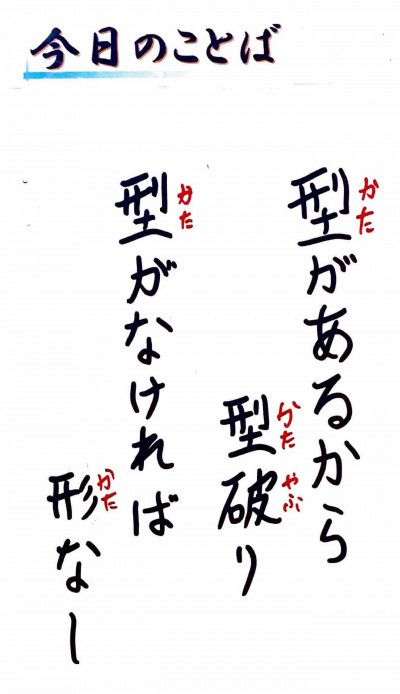 今日のことば
型があるから
型破り
型がなければ
形なし
かた
かた やぶ
かた
かた